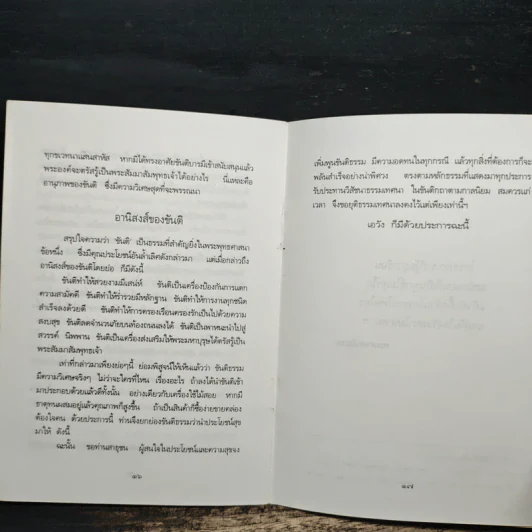 ทุกขเวทนาแสนสาหัส หากมิได้ทรงอาศัยขันติบารมีเข้าสนับสนุนแล้ว
พระองค์จะตรัสรู้เป็นพระสัมมาสัมพุทธเจ้าได้อย่างไร นี่แหละคือ
อานุภาพของขันติ ซึ่งมีความวิเศษสุดที่จะพรรณนา
อานิสงส์ของขันติ
สรุปใจความว่า ขันติ เป็นธรรมที่สำคัญยิ่งในพระพุทธศาสนา
ข้อหนึ่ง ซึ่งมีคุณประโยชน์อันล้ำเลิศดังกล่าวมา แต่เมื่อกล่าวถึง
อานิสงส์ของขันติโดยย่อ ก็มีดังนี้
ขันติทำให้สวยงามมีเสน่ห์ ขันติเป็นเครื่องป้องกันการแตก
ความสามัคคี ขันติทำให้ร่ำรวยมีหลักฐาน ขันติทำให้การงานทุกชนิด
สำเร็จลงด้วยดี ขันติทำให้การครองเรือนครองรักเป็นไปด้วยความ
สงบสุข ขันติลดจำนวนภัยบนท้องถนนลงได้ ขันติเป็นพาหนะนำไปสู่
สวรรค์ นิพพาน ขันติเป็นเครื่องส่งเสริมให้พระมหาบุรุษได้ตรัสรู้เป็น
พระสัมมาสัมพุทธเจ้า
เท่าที่กล่าวมาเพียงย่อๆนี้ ย่อมพิสูจน์ให้เห็นแล้วว่า ขันติธรรม
มีความวิเศษจริงๆ ไม่ว่าจะใครที่ไหน เรื่องอะไร ถ้าลงได้นำขันติเข้า
มาประกอบด้วยแล้วดีทั้งนั้น อย่างเดียวกับเครื่องใช้ไม้สอย หากมี
ธาตุทนผสมอยู่แล้วคุณภาพก็สูงขึ้น ถ้าเป็นสินค้าก็ซื้อง่ายขายคล่อง
ต้องใจคน ด้วยประการนี้ ท่านจึงยกย่องขันติธรรมว่านำประโยชน์สุข
มาให้ ดังนี้
ฉะนั้น ขอท่านสาธุชน ผู้สนใจในประโยชน์และความสุขจง
๑๖
เพิ่มพูนขันติธรรม มีความอดทนในทุกกรณี แล้วทุกสิ่งที่ต้องการก็จะ
พลันสำเร็จอย่างน่าพิศวง ตรงตามหลักธรรมที่แสดงมาทุกประการ
รับประทานวิสัชนาธรรมเทศนา ในขันติกถาตามกาลนิยม สมควรแก่
เวลา จึงขอยุติธรรมเทศนาลงคงไว้แต่เพียงเท่านี้ฯ
เอวัง ก็มีด้วยประการฉะนี้
๑๗